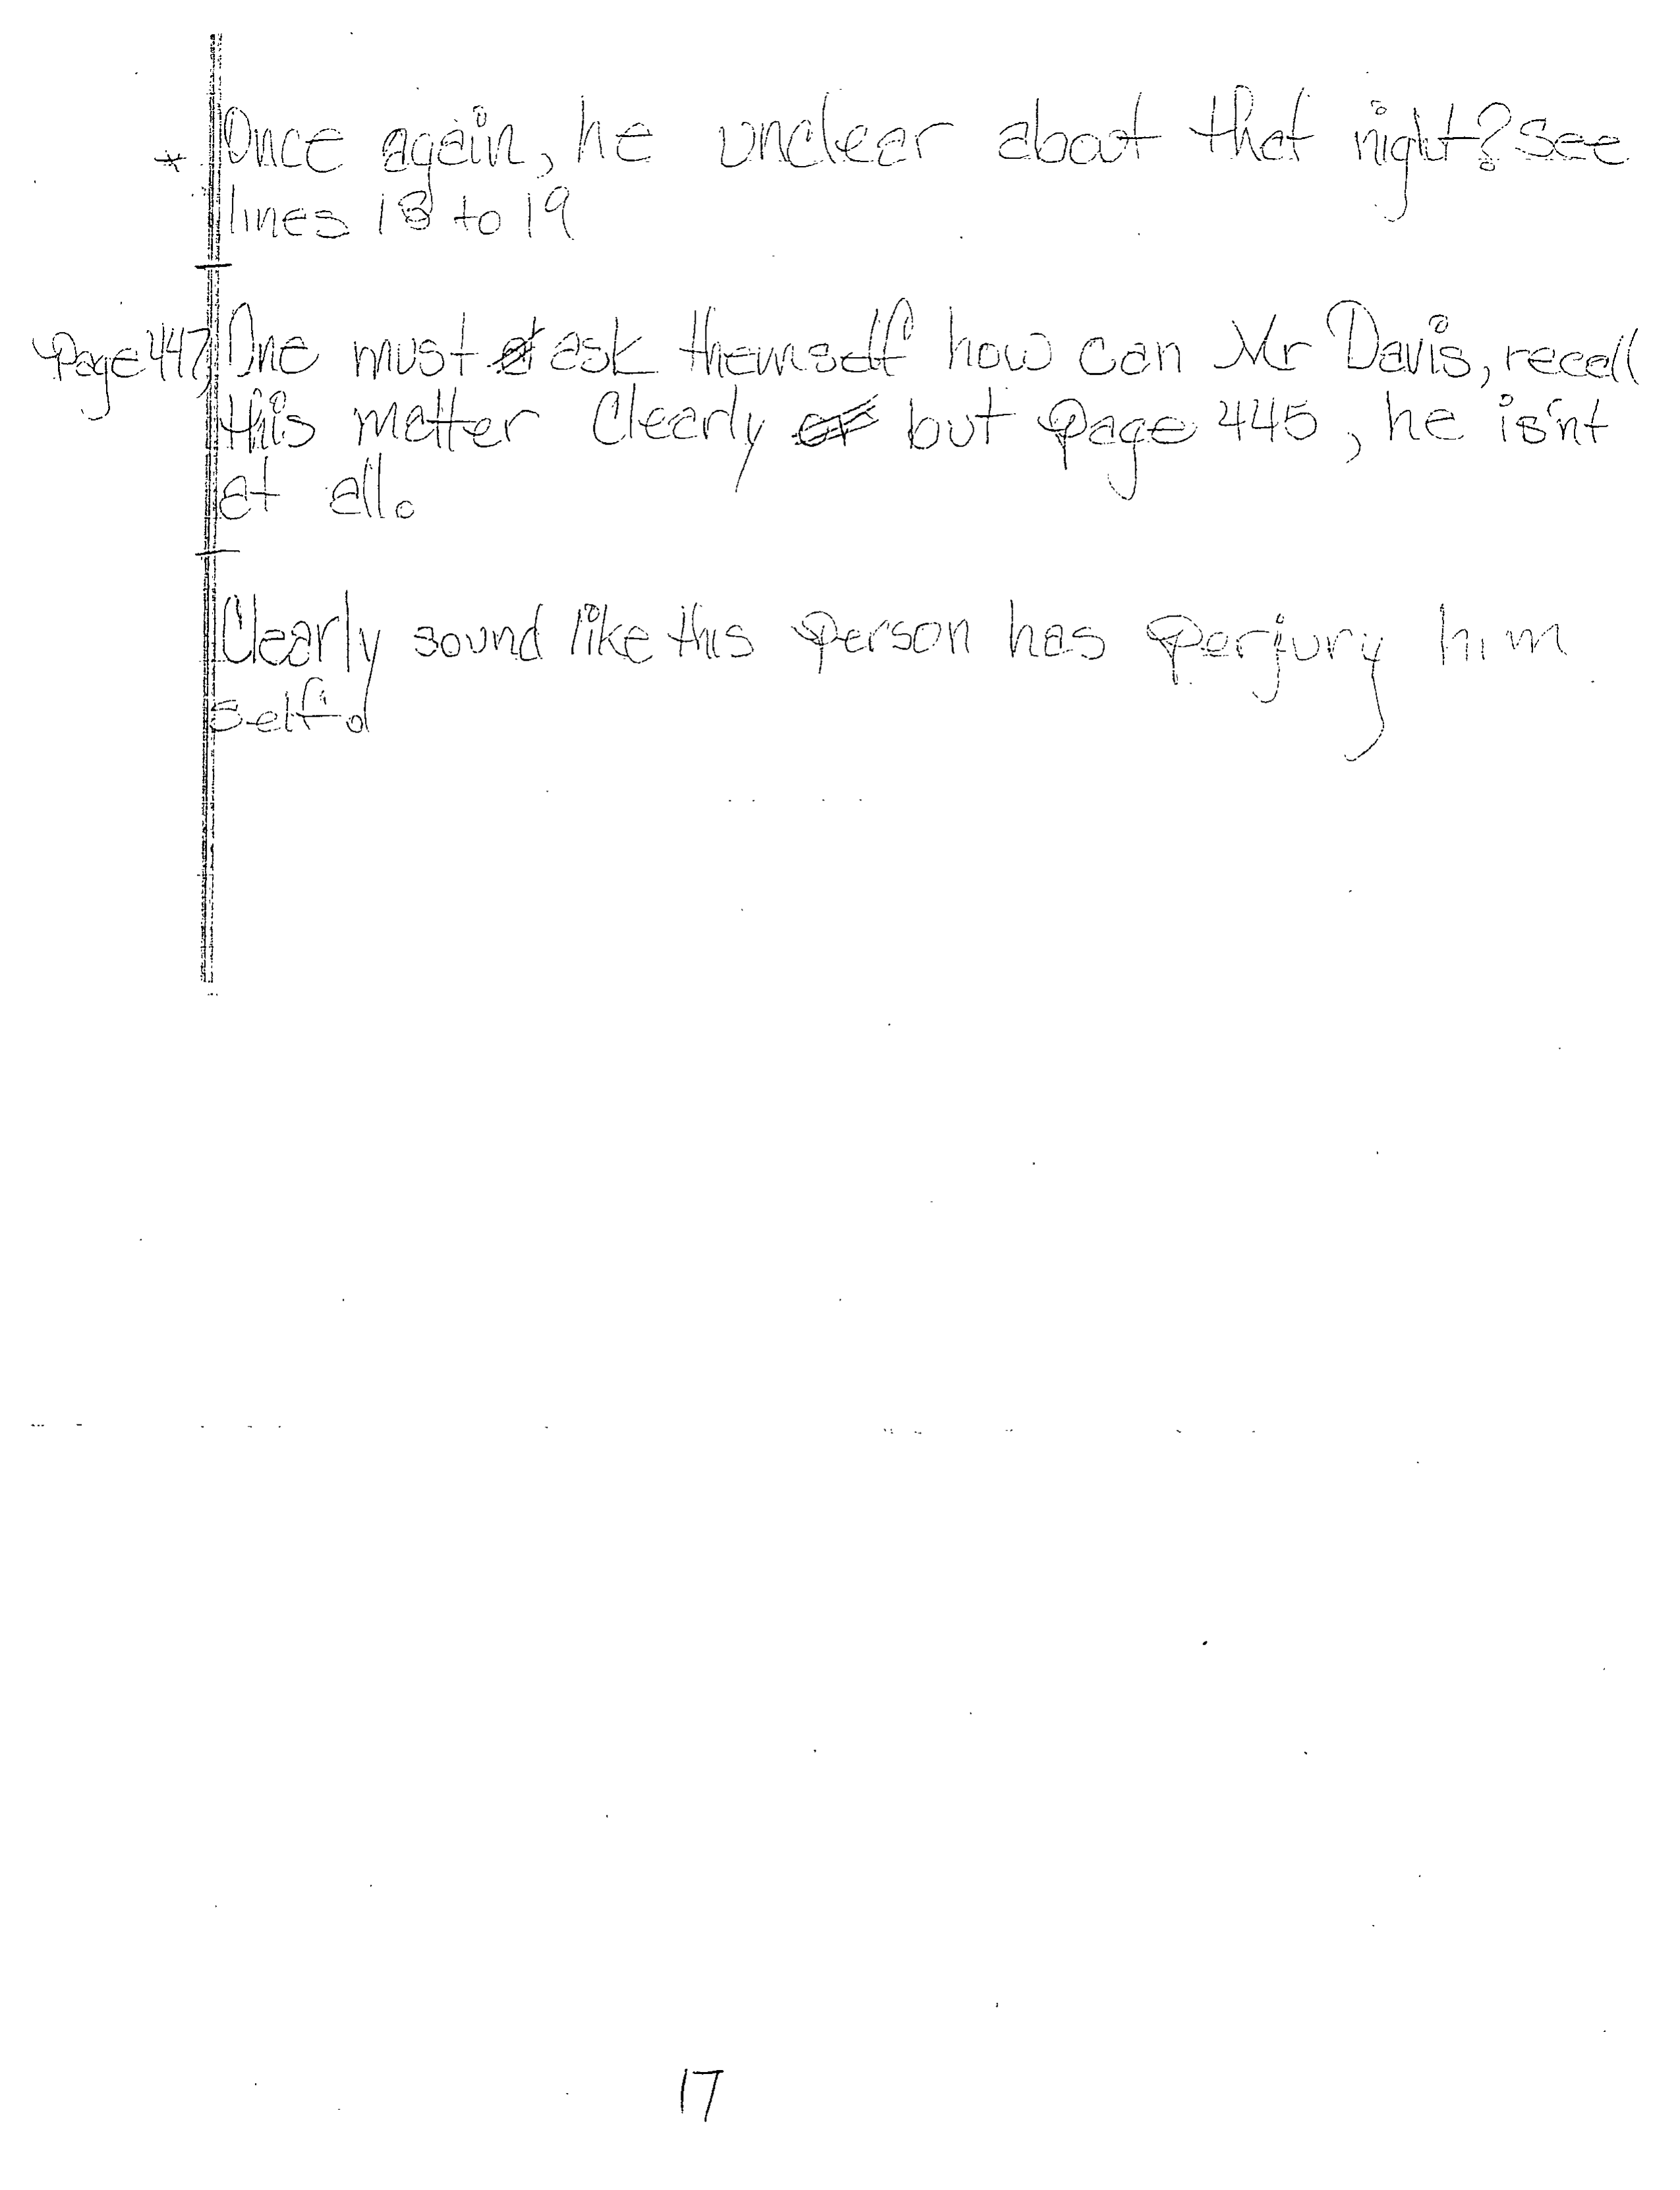 * Once again, he unclear about that night? see
lines 18 to 19
Page 447, One must ask themself how can Mr Davis, recall
this matter Clearly but page 445, he is'nt
at all.
Clearly sound like this person has perjury him
self.
17